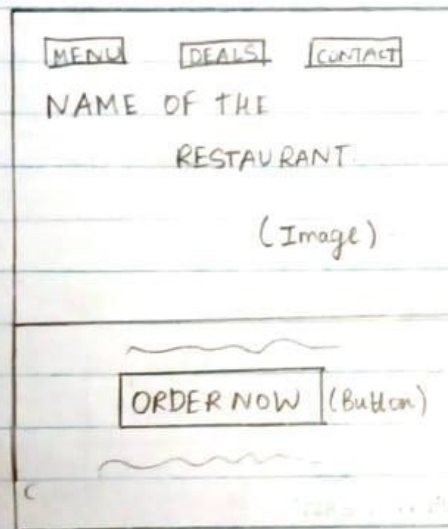 MENU DEALS CONTACT
NAME OF THE
RESTAURANT
(Image)
ORDER NOW (Button)